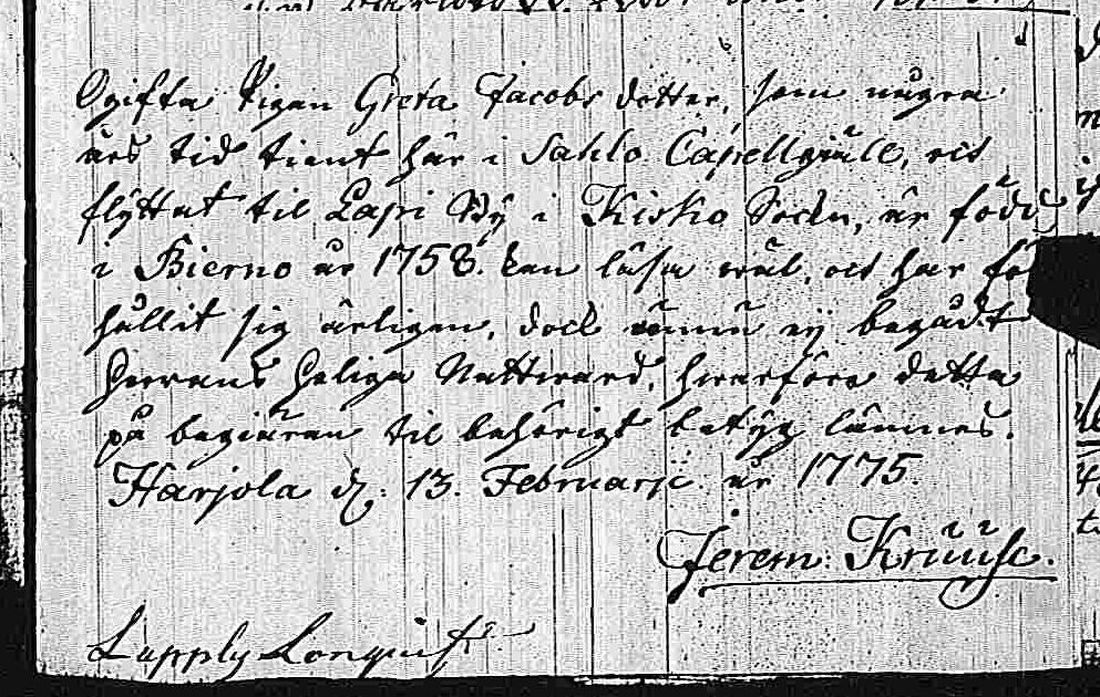 Ogifta Pigan Greta Jacobs dotter, som några
års tid tient här i Sahlo Capellgiäll, ock
flyttat til Lapi By i Kisko Sockn, är född
i Bierno år 1758. kan läsa wäl, ock har för
hållit sig ärligen, dock ännu ej begådt
Herrans Heliga Nattward, hwarföre detta
på begiäran til behörigt betyg lämnes.
Harjola d. 13. Februarii år 1775.
Jerem: Krüüse.